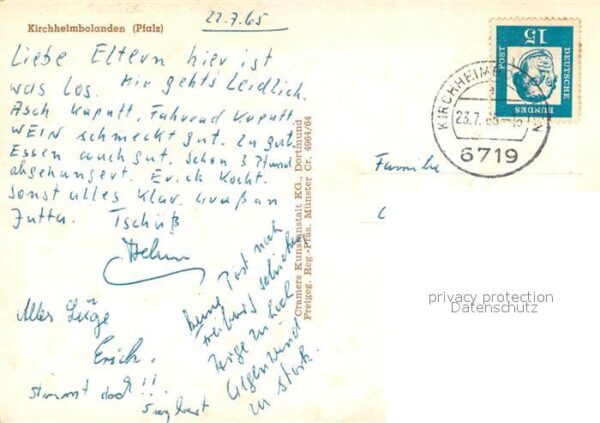 22.7.65
Kirchheimbolanden (Pfalz)
Liebe Eltern hier ist
was los. Mir gehts Leidlich.
Asch kaputt, Fahrrad kaputt
WEIN schmeckt gut. Zu gut.
Essen auch gut. schon 3 Pfund
abgehungert. Erick kocht.
sonst alles klar. Gruß an
Jutta. Tschüß
Alles Lüge
Erich.
stimmt doch!!
Keine Post nach
schicken
Gegenwind
zu stark.
Cramers Kunstanstalt KG., Dortmund
Freigeg. Reg.-Präs. Münster Cr. 4964/64
15
DEUTSCHE
BUNDES
POST
KIRCHHEIMB
N
23.7.65-15
6719
Familie
privacy protection
Datenschutz